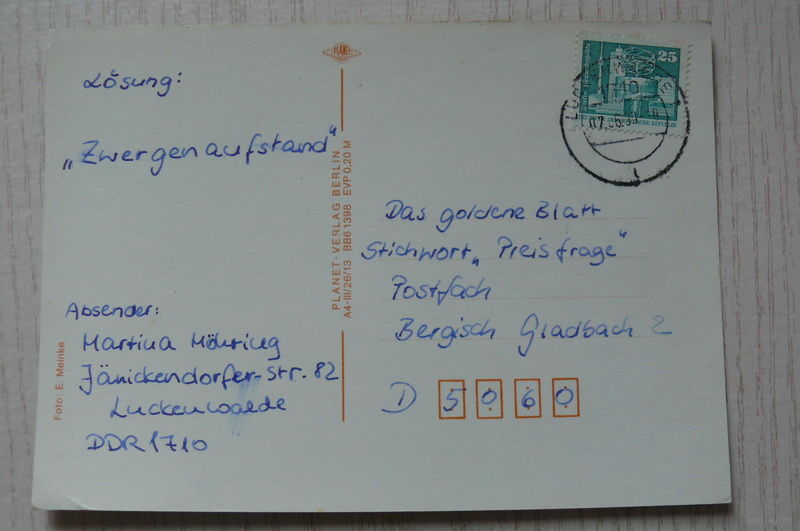 Lösung:
„Zwergenaufstand"
Absender:
Martina Möhring
Jänickendorfer-Str. 82
Luckenwalde
DDR 1710
Foto: E. Meinke
PLANET
PLANET-VERLAG BERLIN
A4-III/26/13 BB6 1398 EVP 0,20 M
25
1710
Das goldene Blatt
Stichwort „Preisfrage"
Postfach
Bergisch Gladbach 2
D 5060